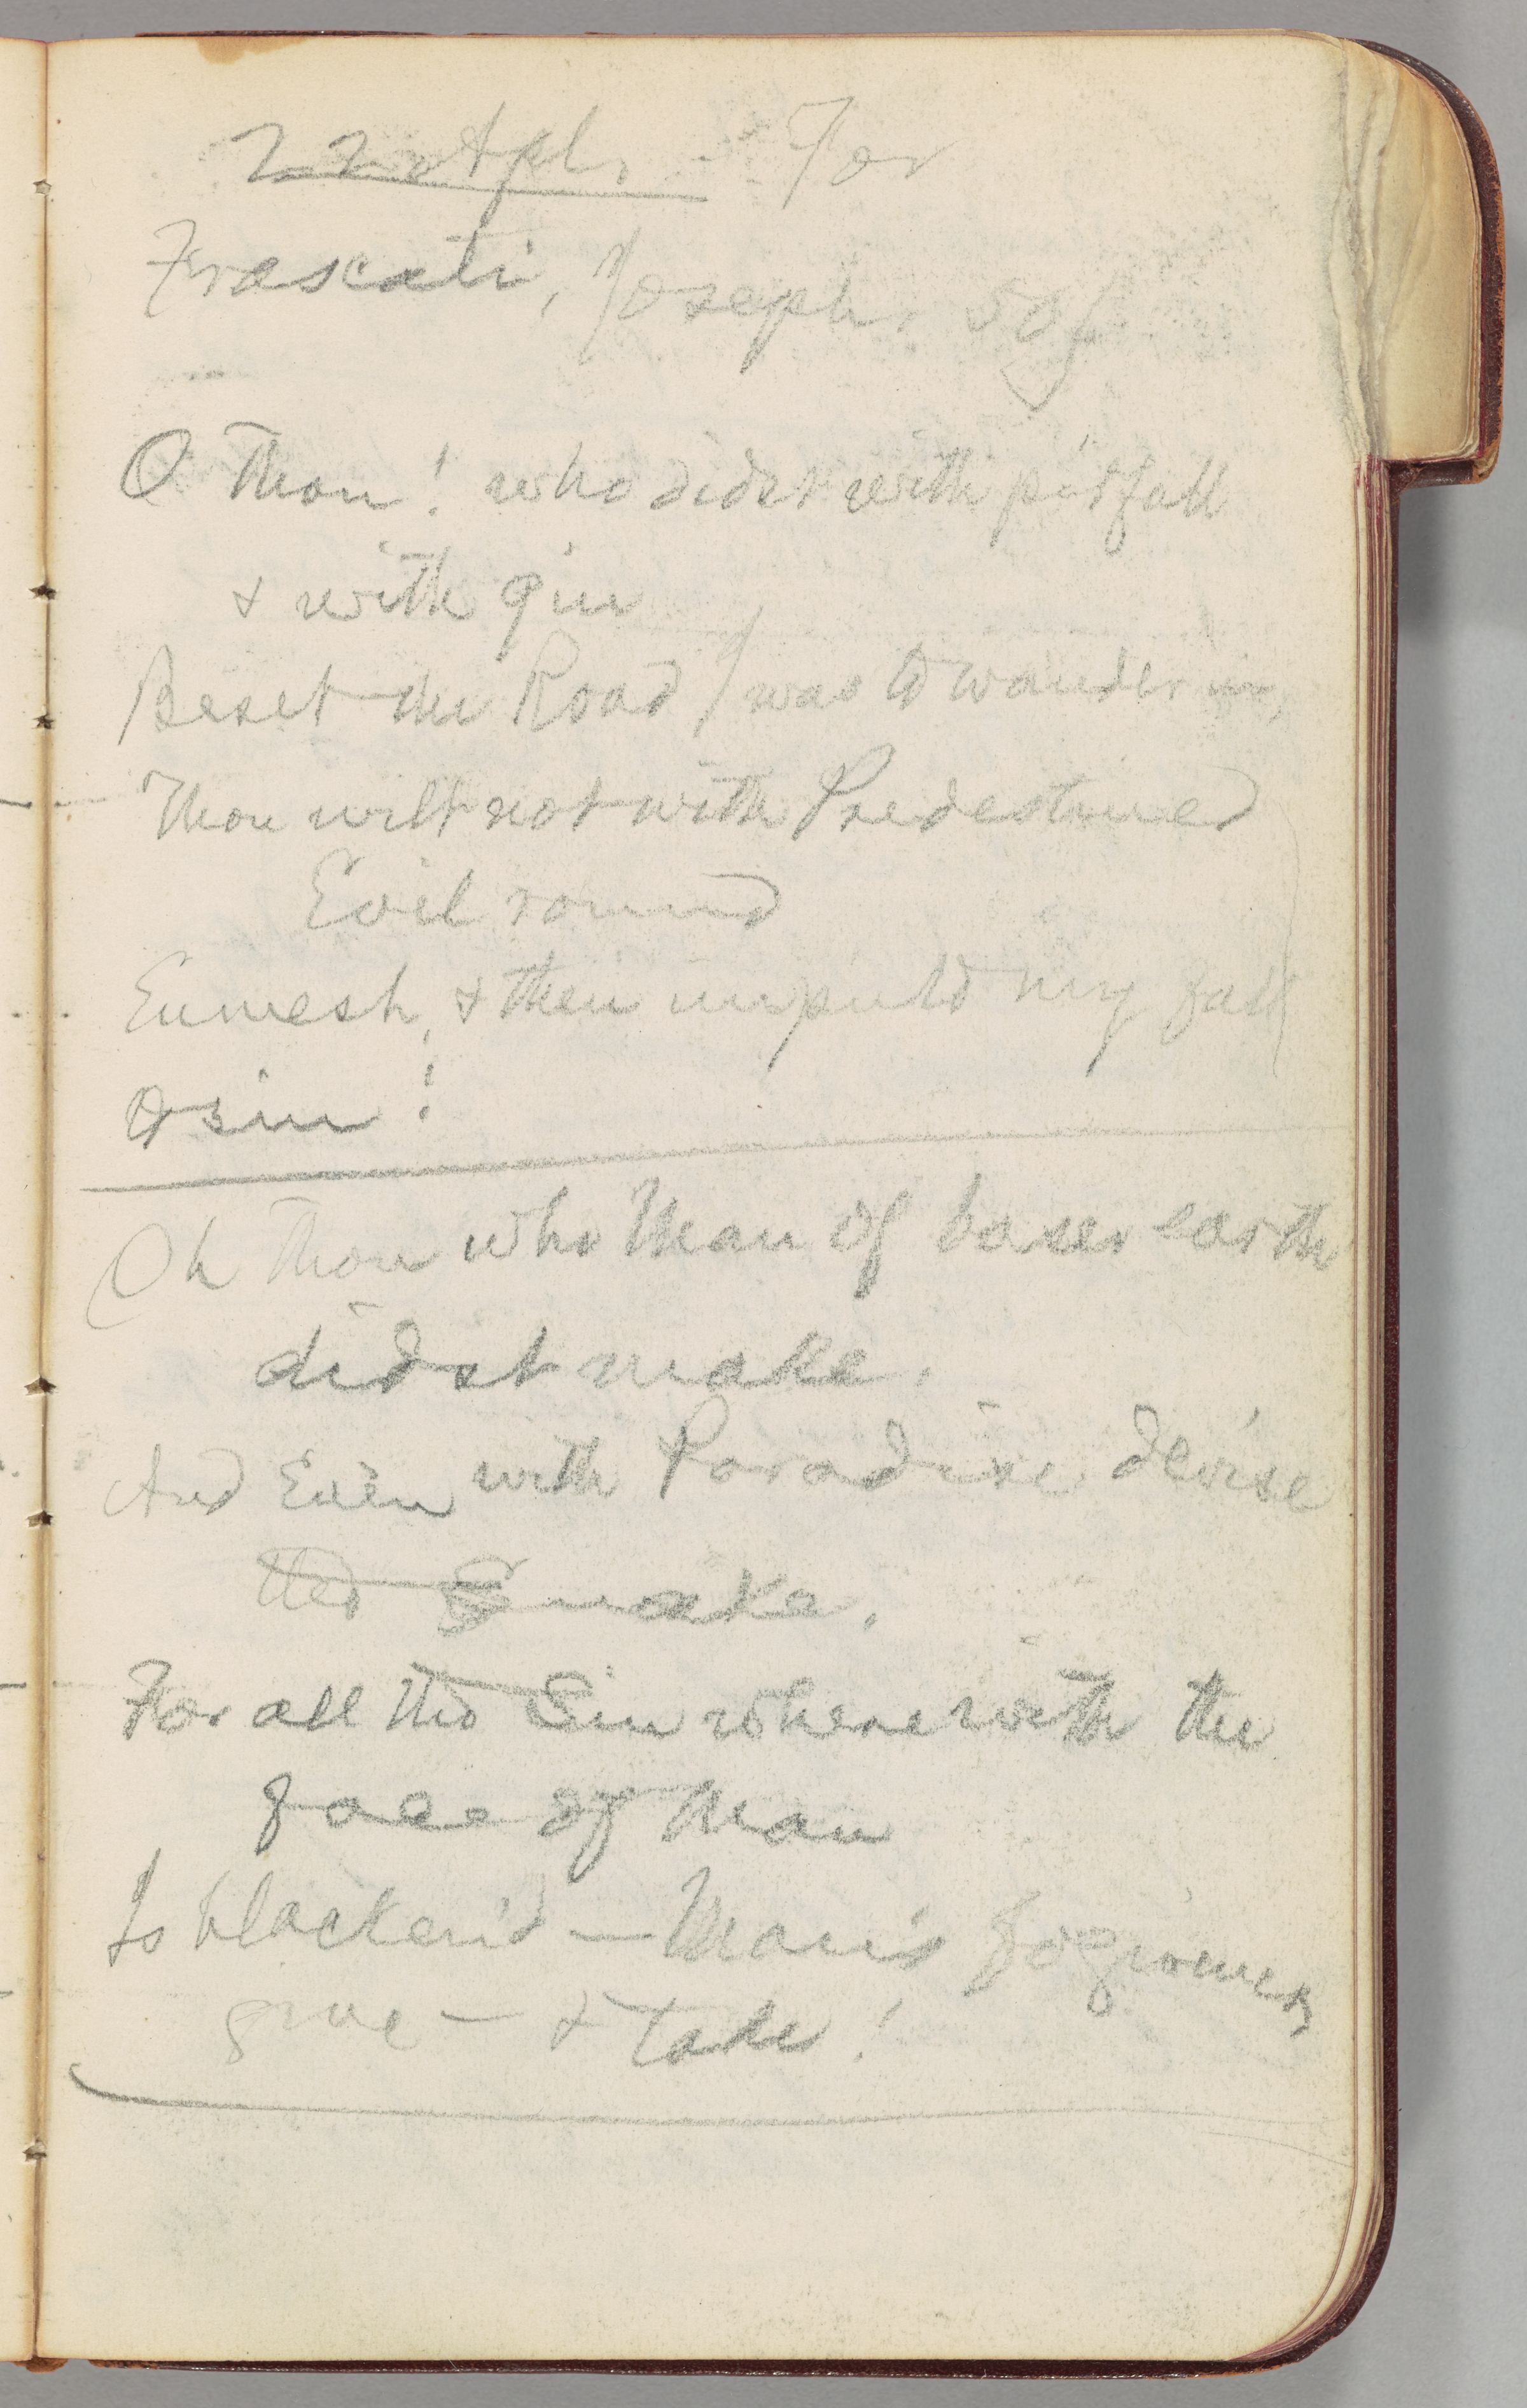 22 Apl. For
Frascati, Joseph. 50f
O Thou! who didst with pitfall
& with gin
Beset the Road I was to wander in,
Thou wilt not with Predestined
Evil round
Enmesh, & then impute my fall
to sin!
Oh Thou who Man of baser earth
didst make.
And Even with Paradise devise
the Snake.
For all the Sin wherewith the
face of Man
Is blacken'd — Man's forgivenes
give — & take!